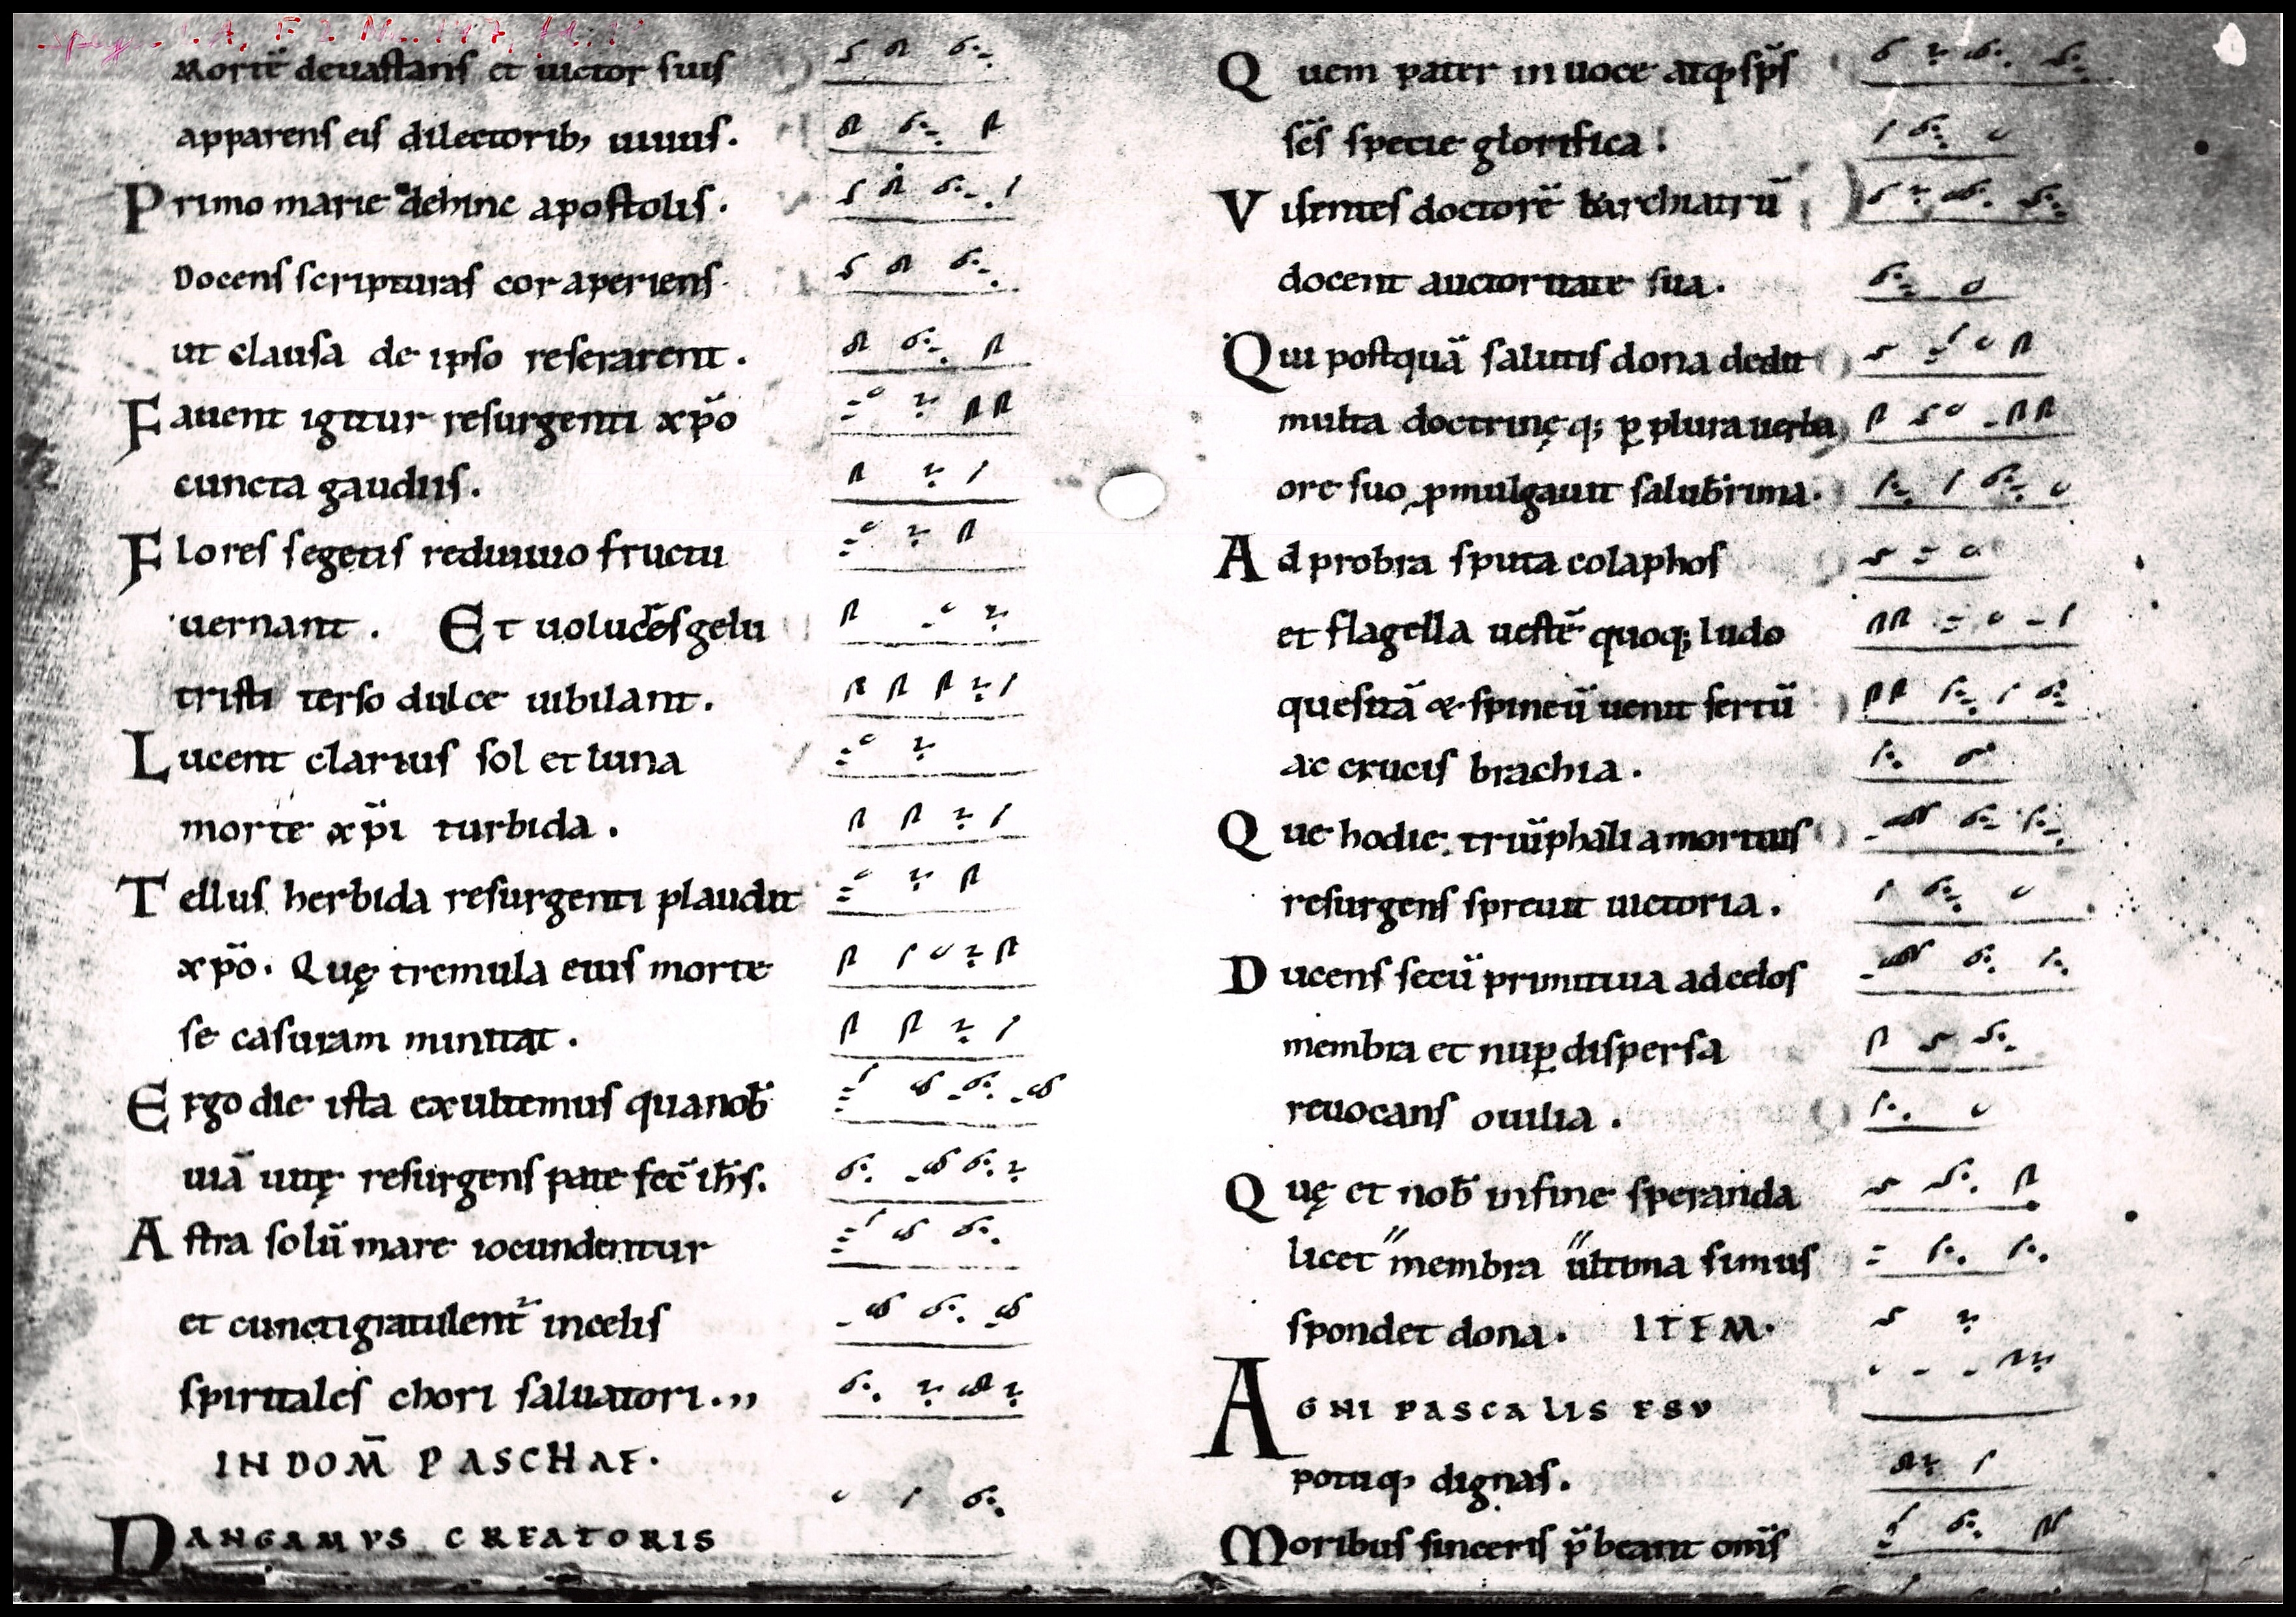 Mortē deuastans et uictor suis
apparens eis dilectorib; uiuus.
Primo marie dehinc apostolis.
Docens scripturas cor aperiens.
ut clausa de ipso reserarent.
Fauent igitur resurgenti xp̄o
cuncta gaudiis.
Flores segetis rediuiuo fructu
uernant. Et uolucres gelu
tristi terso dulce iubilant.
Lucent clarius sol et luna
morte xp̄i turbida.
Tellus herbida resurgenti plaudit
xp̄o. Quę tremula eius morte
se casuram minitat.
Ergo die ista exultemus qua nob̄
uiā uitę resurgens patefec̄ ih̄s.
Astra solū mare iocundentur
et cuncti gratulent᷑ in celis
spiritales chori saluatori.,,
IN DOM̄ PASCHAE.
PANGAMVS CREATORIS
Quem pater in uoce atq; sp̄s
sc̄s specie glorifica.
Visentes doctorē archiatrū
docent auctoritate sua.
Qui postquā salutis dona dedit
multa doctrinęq; ꝑ plura uerba
ore suo ꝓmulgauit saluberrima.
Ad probra sputa colaphos
et flagella uestē quoq; ludo
quesitā & spineū uenit sertū
ac crucis brachia.
Que hodie triūphali a mortuis
resurgens spreuit uictoria.
Ducens secū primitiua ad celos
membra et nuꝑ dispersa
reuocans ouilia.
Quę et nob̄ in fine speranda
licet membra ultima simus
spondet dona. ITEM.
AGNI PASCALIS ESV
potuq; dignas.
Moribus sinceris p̄beant om̄s